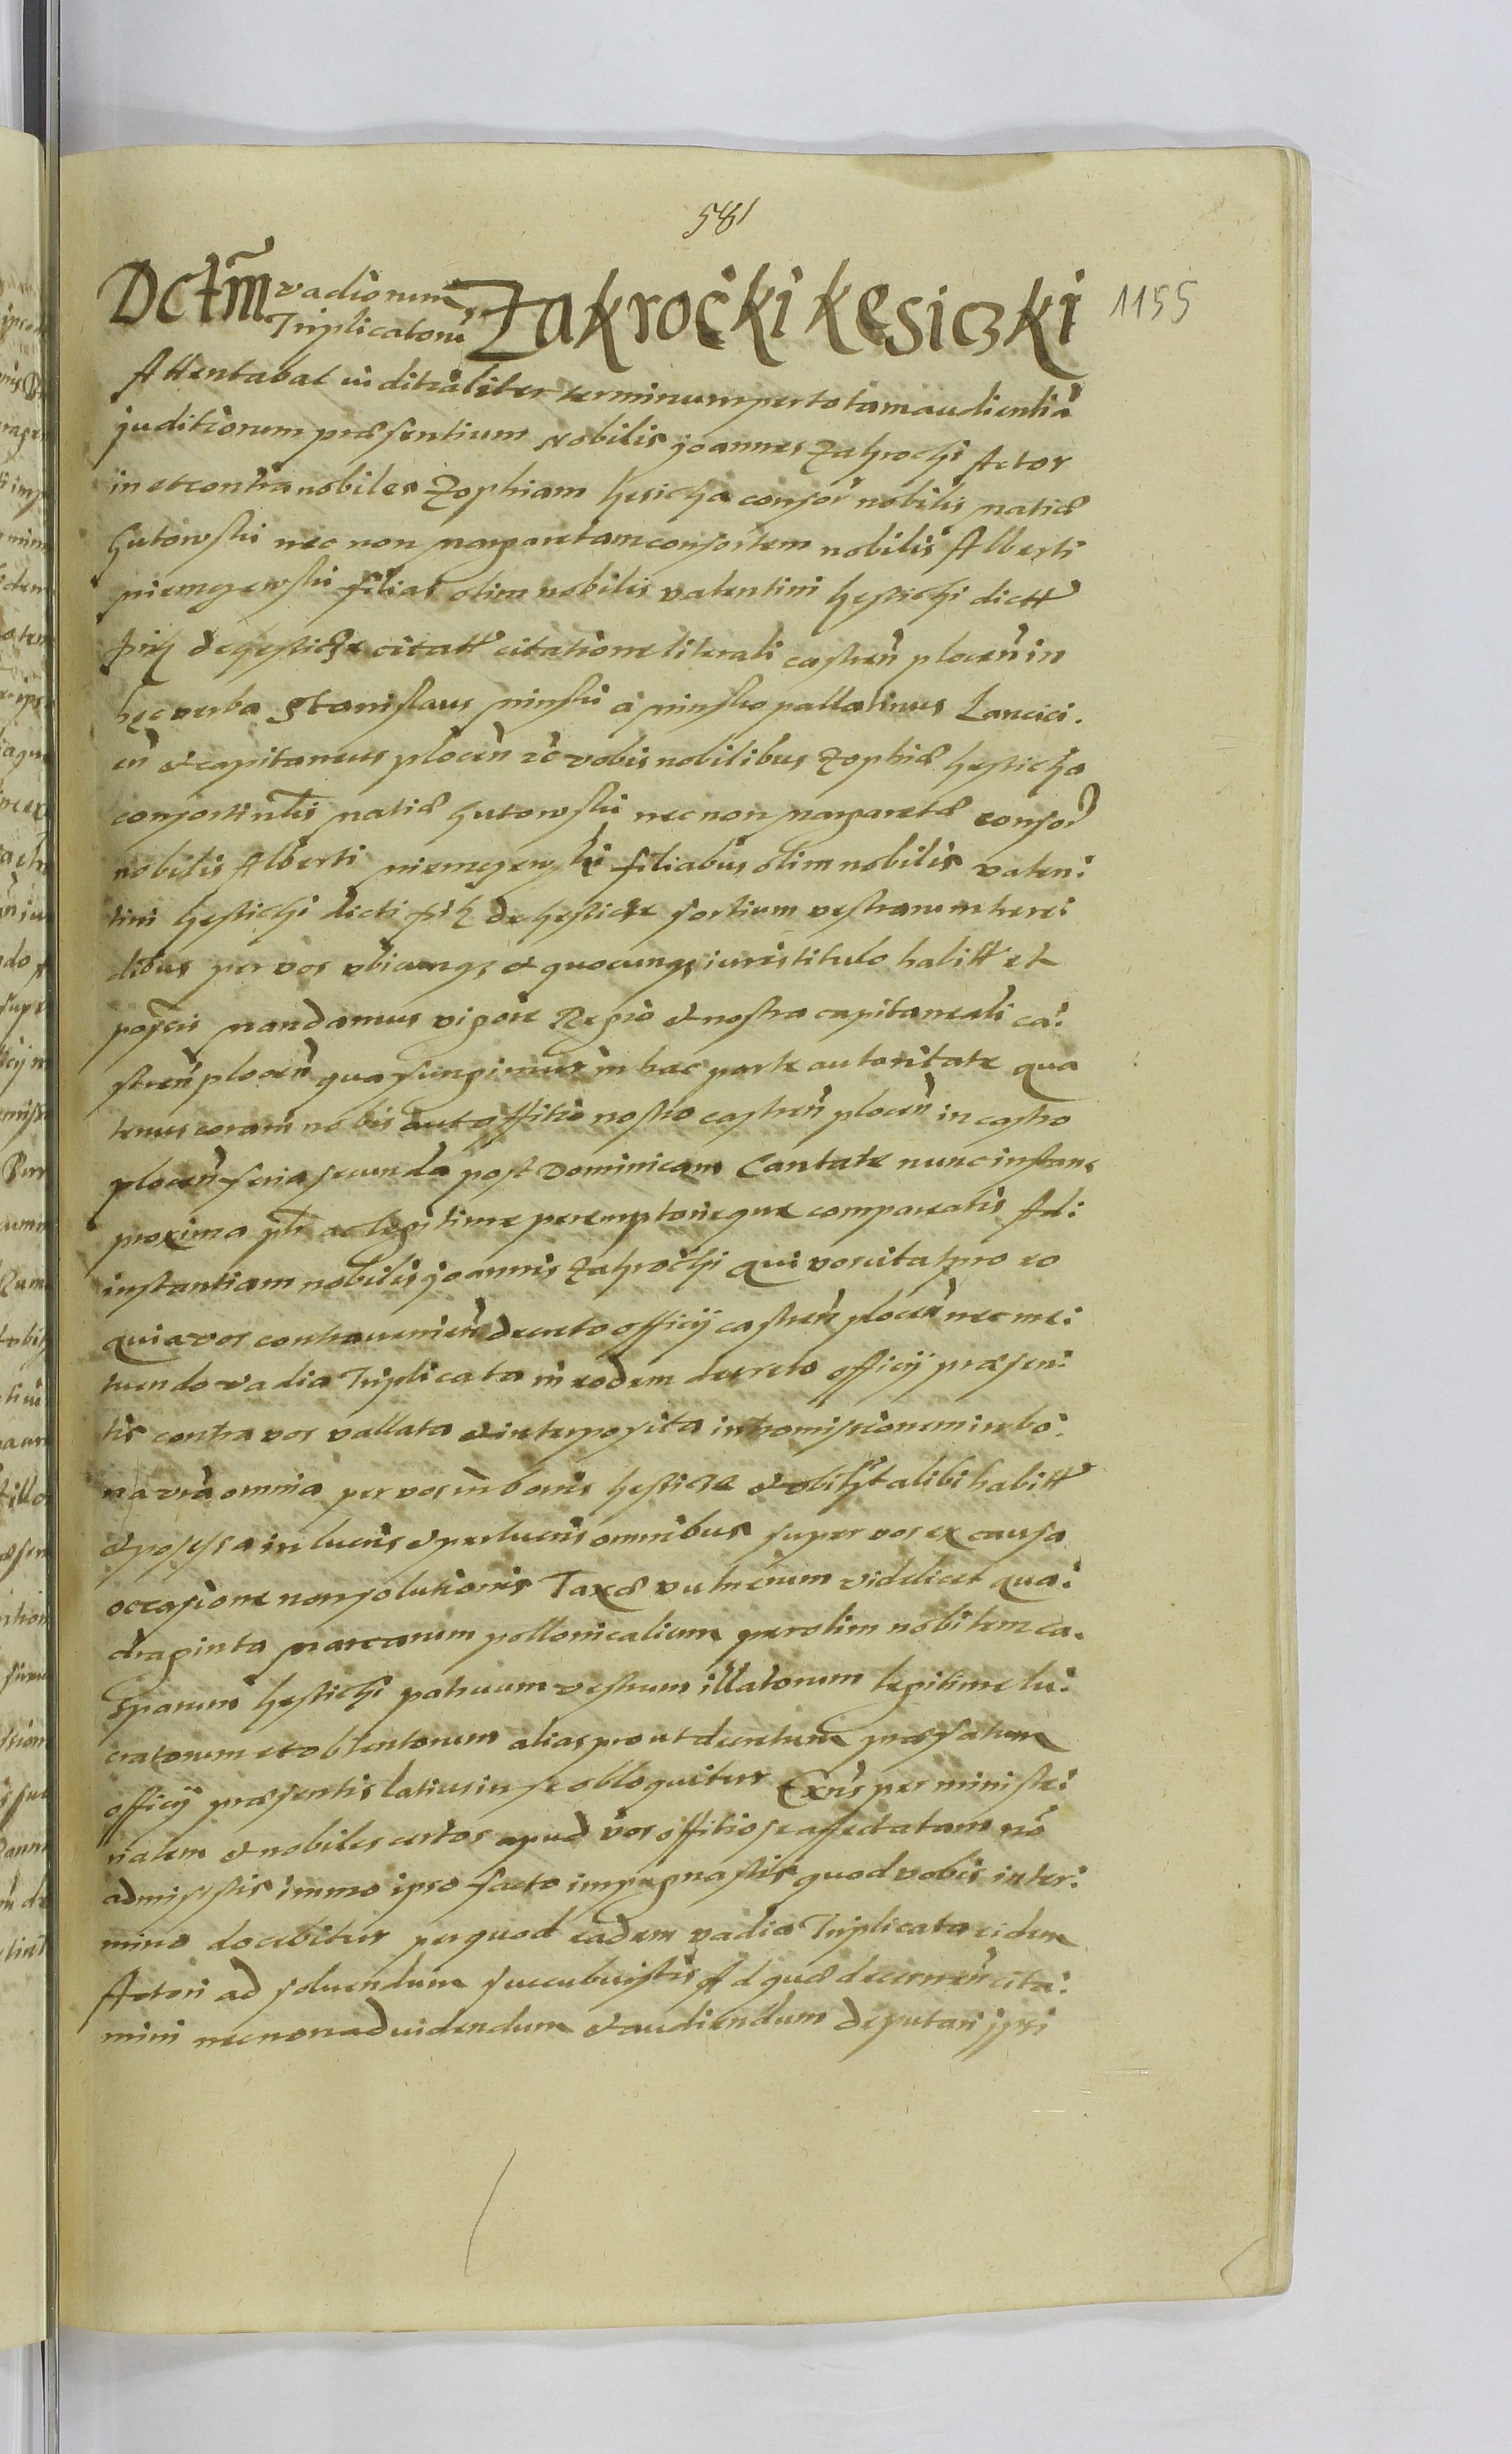 581
Dctm̃ vadiorum Triplicatorũ Zakroćki Kęsiczki 1155
Attentabat iuditialiter terminum per totam audientiã
juditiorum præsentium Nobilis joannes Zakrocki Actor
in et contra nobiles Zophiam kesicka consor̃ nobilis Matiæ
Gutowski nec non Margaretam consortem nobilis Alberti
Niemegewski filias olim nobilis valentini kęsicki dictt
de kęsicze citatt citatione literali castreñ ploceñ in
hęc verba Stanislaus Minski à Minsko pallatinus Lancici:
eñ et capitaneus ploceñ vobis nobilibus Zophiæ kęsicka
consorti Matiæ Gutowski nec non Margaretæ consor̃
nobilis Alberti Niemegewski filiabus olim nobilis valen:
tini kęsicki dicti de kęsicze sortium vestrarum here:
dibus per vos vbicunq₃ et quocunq₃ iuris titulo habitt et
possess Mandamus vigore Regio et nostra capitaneali ca:
streñ ploceñ qua fungimur in hac parte autoritate qua
tenus coram nobis aut offitio nostro castreñ ploceñ in castro
ploceñ feria secunda post Dominicam Cantate nunc instans
proxima ac legitime peremptorieque compareatis Ad:
instantiam nobilis joannis Zakrocki qui vos citat pro eo
quia vos contrauenieñ decreto officij castreñ ploceñ nec me:
tuendo vadia Triplicata in eodem decreto officij præsen:
tis contra vos vallata et interposita intromissionem in bo:
na vrã omnia per vos in bonis kęsicze et alibi habitt
et possessa in lucris et perlucris omnibus super vos ex causa
occasione non solutionis Taxæ vulnerum videlicet qua:
draginta marcarum pollonicalium per olim nobilem Ca:
sparum kęsicki patruum vestrum illatorum legitime lu:
cratorum et obtentorum alias prout decretum præfatum
officij præsentis latius in se obloquitur per ministe:
rialem et nobiles certos apud vos offitiose affectatam nõ
admisistis immo ipso facto impugnastis quod vobis in ter:
mino docebitur per quod eadem vadia Triplicata eidem
Actori ad soluendum succubuistis Ad quæ decerneñ cita:
mini nec non ad videndum et audiendum deputari ipsi